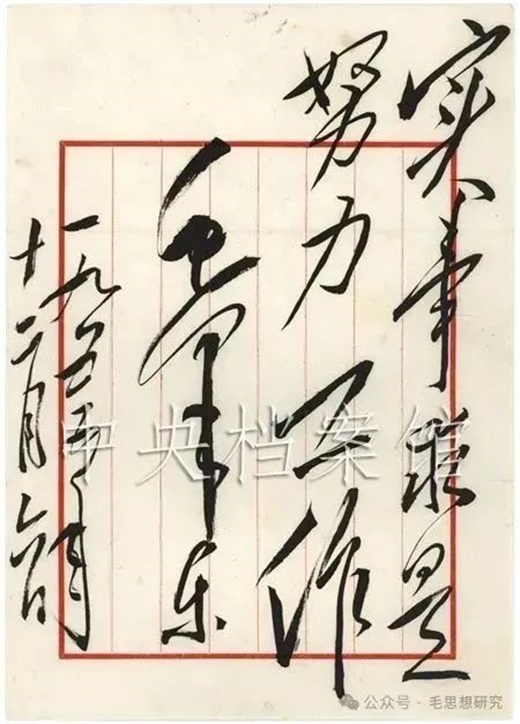 实事求是
努力工作
毛泽东
一九五
十二月
中央档案馆
公众号 · 毛思想研究